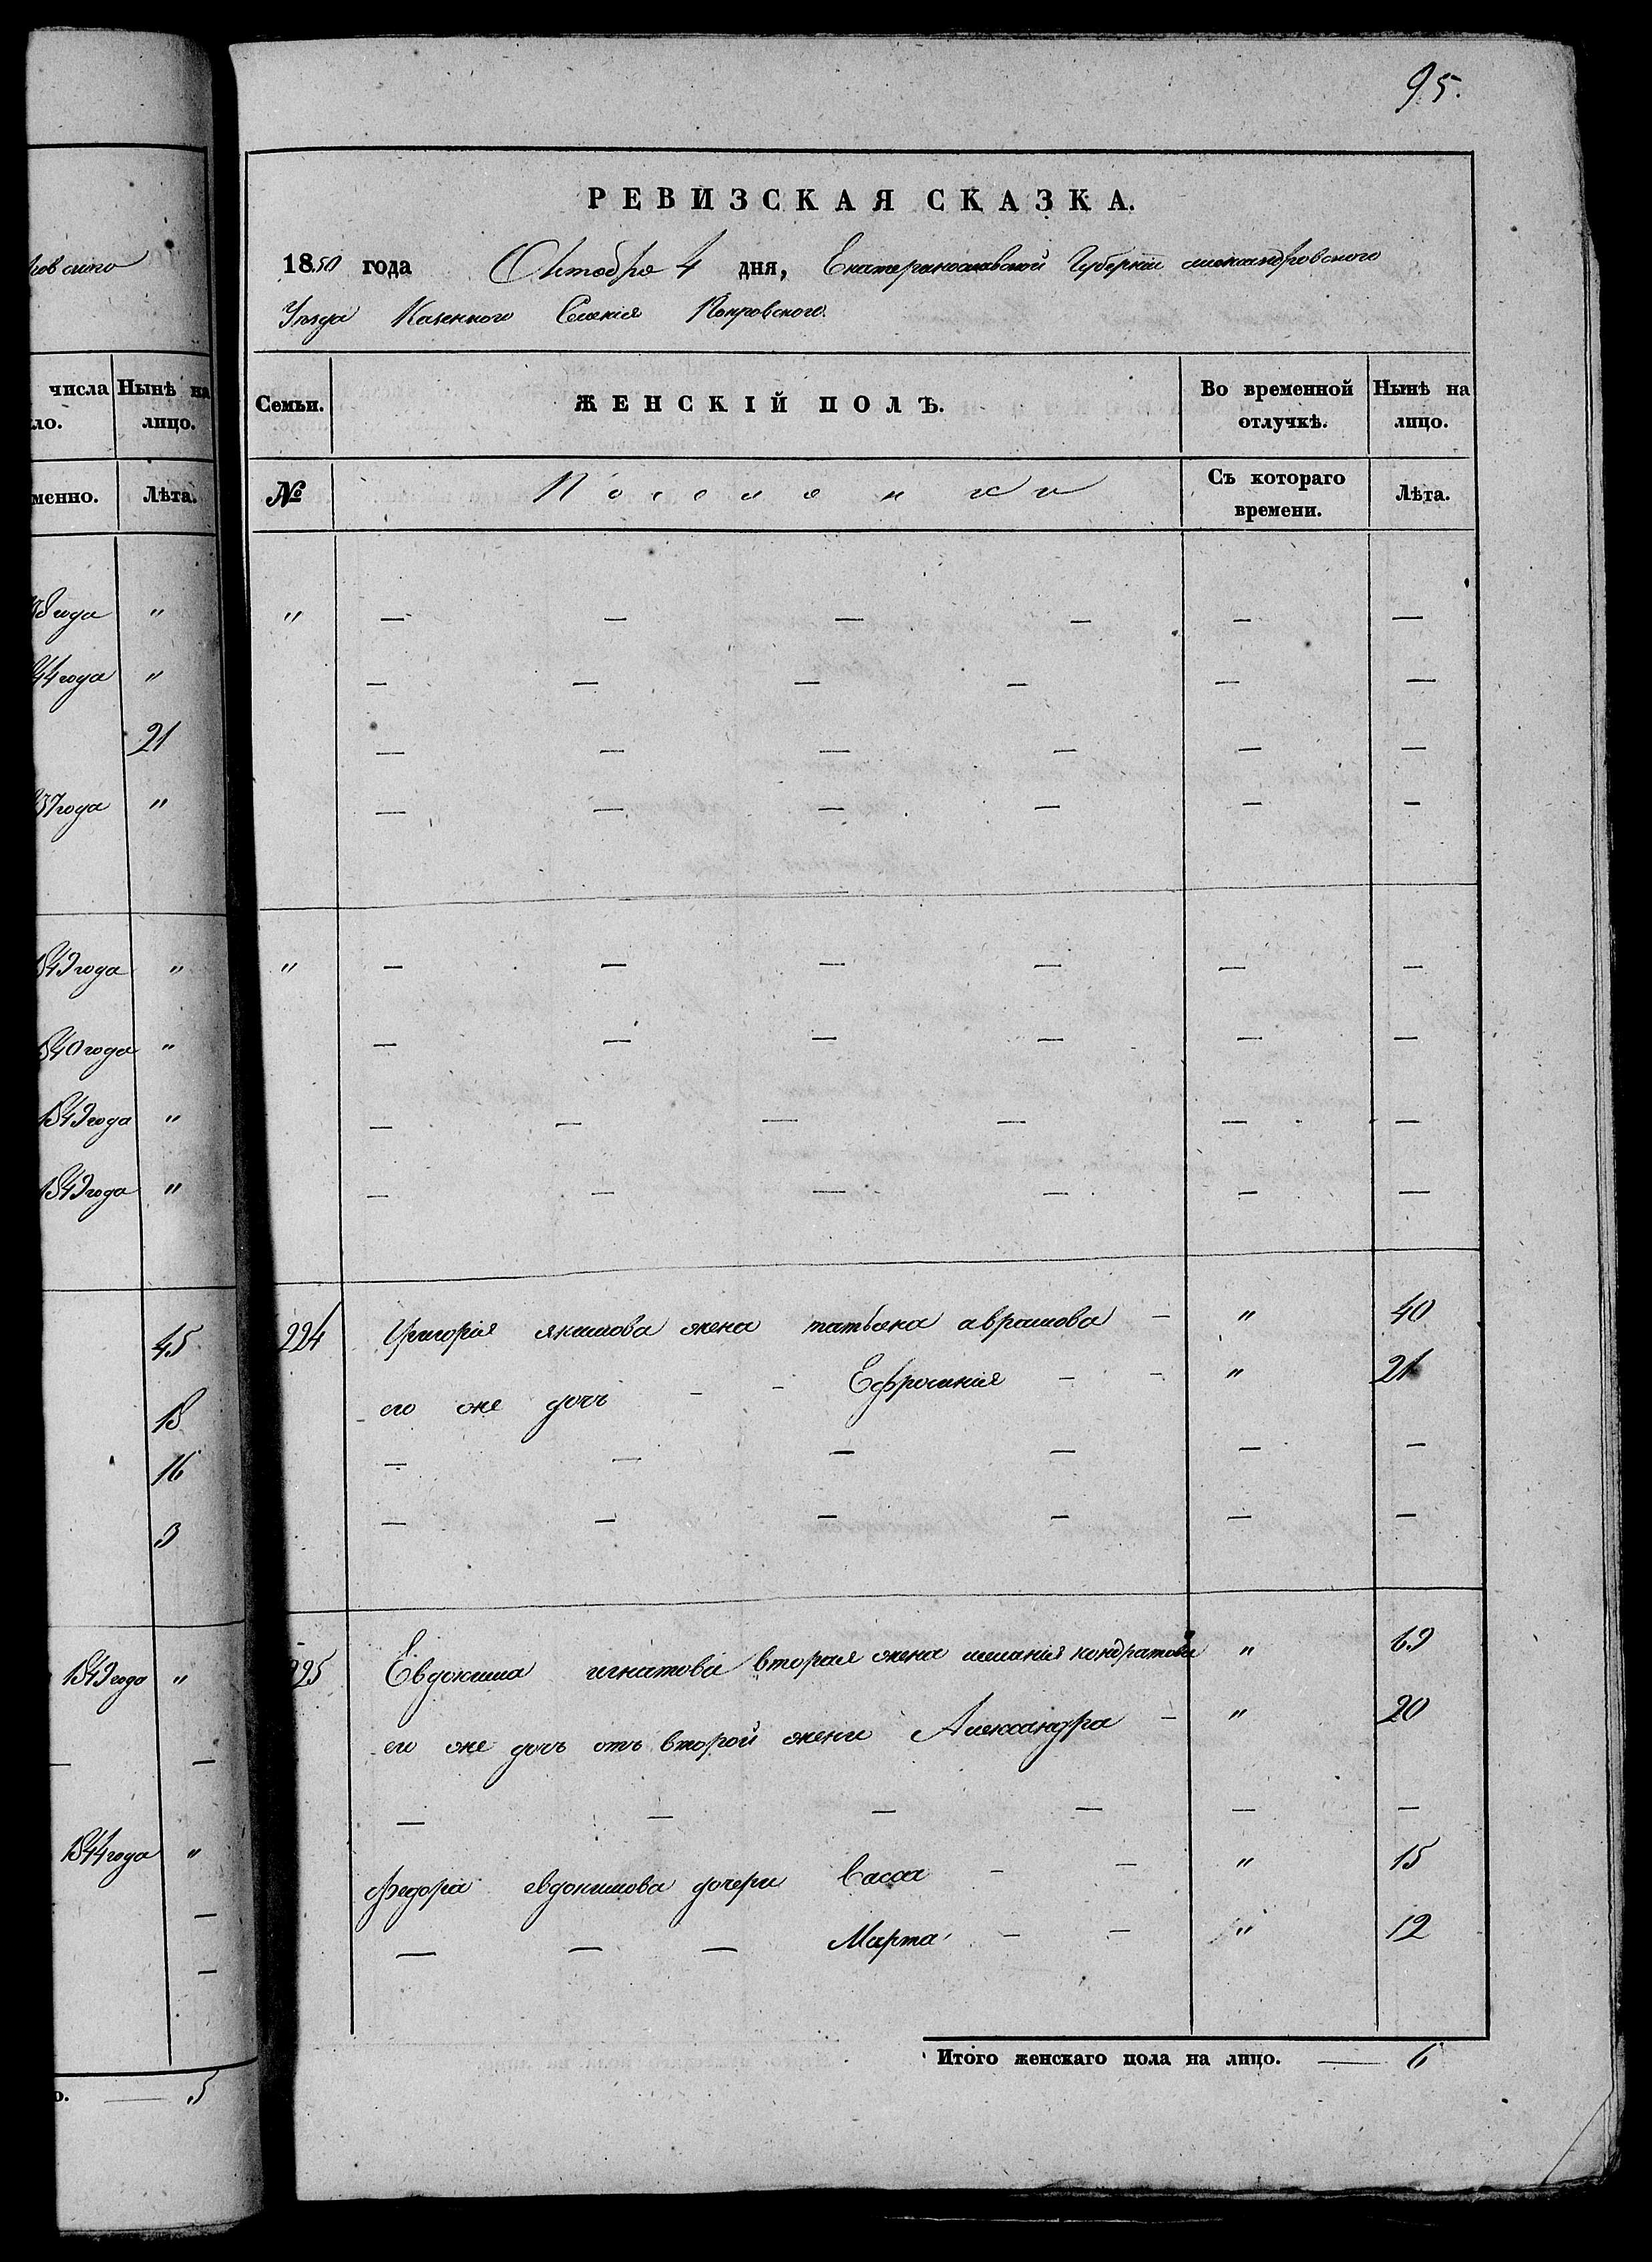 95.
РЕВИЗСКАЯ СКАЗКА.
1850 года Октября 4 дня, Екатеринославской Губернии александровского
Уезда Казенного Селения Покровского.
ковского
числа Нынѣ на
ло. лицо.
менно. Лѣта.
Семьи. ЖЕНСКІЙ ПОЛЪ. Во временной отлучкѣ. Нынѣ на лицо.
№ Поселянки Съ котораго времени. Лѣта.
38 года " " — — — — — —
44 года " — — — — — —
21 — — — — — —
37 года " — — — — — —
1849 года " " — — — — — —
1840 года " — — — — — —
1849 года " — — — — — —
1849 года " — — — — — —
45 224 Григория якимова жена татьяна аврамова — " 40
18 его же дочь — — Ефросиния — — " 21
16 — — — — — —
3 — — — — — —
1849 года " 225 Евдокима игнатова вторая жена мелания кондратова " 69
— — его же дочь отъ второй жены Александра — " 20
— — — — — —
1844 года " федора евдокимова дочери Васса — — " 15
— — — — Марта — — " 12
—
о. — 5 Итого женскаго пола на лицо. — 6